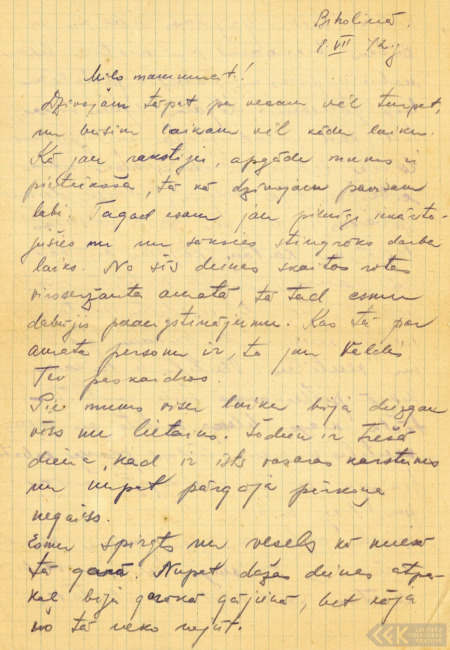 Biholinā.
9. VII 42.g
Mīļo mammucīt!
Dzīvojam tāpat pa vecam vēl turpat,
un būsim laikam vēl kādu laiku.
Kā jau rakstīju, apgāde mums ir
pietiekoša, tā kā dzīvojam pavisam
labi. Tagad esam jau pilnīgi iekārto-
jušies un sāksies stingrāks darba
laiks. No šīs dienas skaitos rotas
virsseržanta amatā, tā tad esmu
dabūjis paaugstinājumu. Kas tā par
amata personu ir, to jau Valdis
Tev paskaidros.
Pie mums visu laiku bija diezgan
vēss un lietains. Šodien ir trešā
diena, kad ir īsts vasaras karstums
un nupat pārgāja pērkoņa
negaiss.
Esmu spirgts un vesels kā miesā
tā garā. Nupat dažas dienas atpa-
kaļ bija garākā gājienā, bet kāja
no tā neko nejūt.